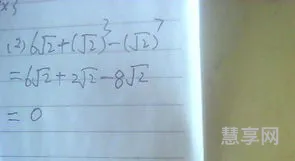 (2) 6√2+(√2)³-(√2)⁷
=6√2+2√2-8√2
=0
慧享网